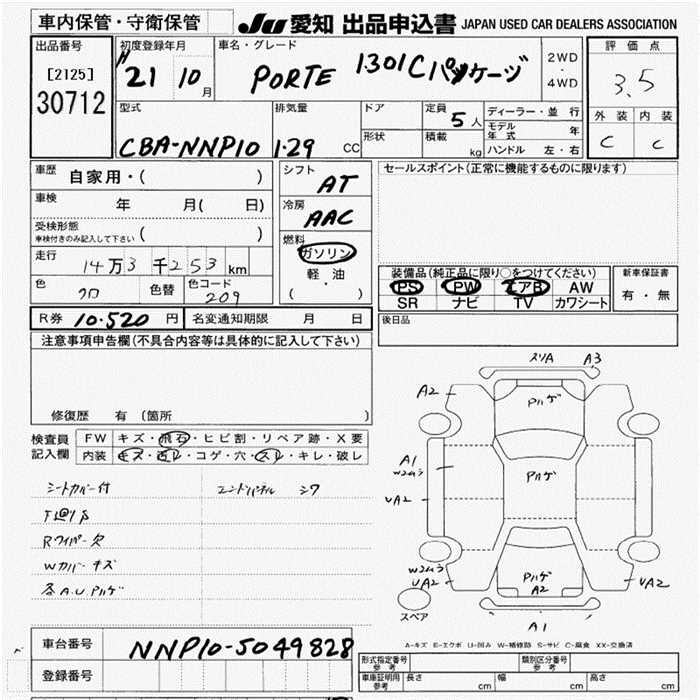 車内保管・守衛保管
JU 愛知 出品申込書 JAPAN USED CAR DEALERS ASSOCIATION
出品番号
[2125]
30712
初度登録年月
H21 10月
車名・グレード
PORTE 1.30 1Cパッケージ
2WD
・
4WD
評価点
3.5
外装 内装
C C
型式
CBA-NNP10
排気量
1.29 CC
ドア
形状
定員 5人
積載 kg
ディーラー・並行
モデル年式 年
ハンドル 左・右
車歴 自家用・( )
車検 年 月( 日)
受検形態
車検付きのみ記入して下さい ( )
走行 14万3千253km
色 クロ 色替 色コード 209
シフト
AT
冷房
AAC
燃料
ガソリン
軽・油
( ・ )
セールスポイント(正常に機能するものに限ります)
装備品(純正品に限り○をつけてください)
PS PW エアB AW
SR ナビ TV カワシート
新車保証書
有・無
R券 10.520円 名変通知期限 月 日
後日品
注意事項申告欄(不具合内容等は具体的に記入して下さい)
修復歴 有 (箇所 )
検査員記入欄
FW キズ・飛石・ヒビ割・リペア跡・X要
内装 キズ・汚レ・コゲ・穴・スレ・キレ・破レ
シートカバー付 エンドパネル シワ
Rワイパー欠
Wカバーキズ
各A.U.Pハゲ
スリA A3
A2 Pハゲ
A1 Pハゲ
UA2
UA2 Pハゲ A2 UA2
スペア
A1
A-キズ E-エクボ U-凹み W-補修跡 S-サビ C-腐食 XX-交換済
車台番号 NNP10-5049828
登録番号
形式指定番号 参考 類別区分番号 参考
車庫証明用 参考 長さ cm 幅 cm 高さ cm